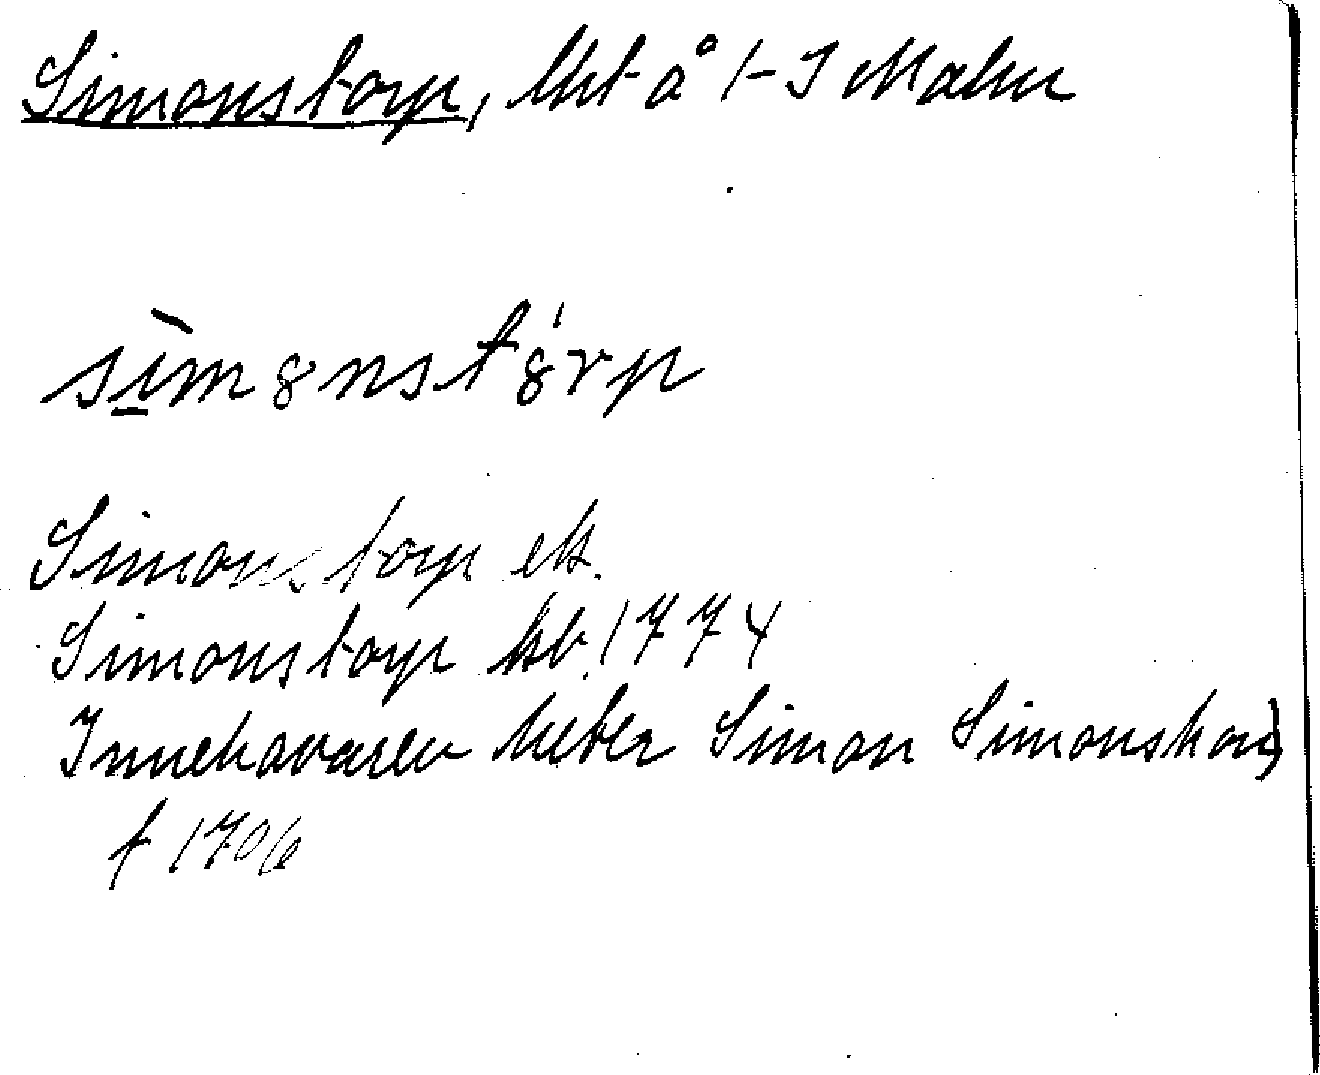 Simonstorp, lht å 1-3 Malm
sìmȣnstȣ́rp
Simonstorp ek.
Simonstorp hb. 1774
Innehavaren heter Simon Simonsson,
f 1706